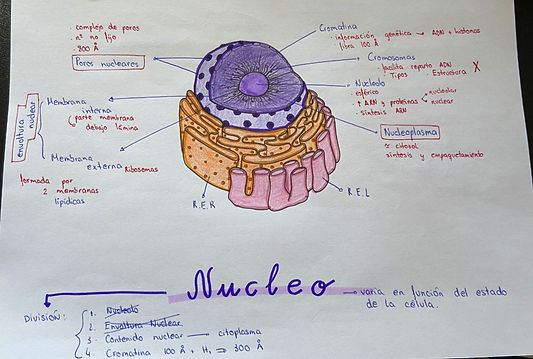 · complejo de poros
· nº no fijo
· 800 Å
Poros nucleares
Cromatina
· información genética → ADN + histonas
· fibra 100 Å
Cromosomas
· facilita reparto ADN
· Tipos · Estructura X
Nucleolo
· esférico
· ↑ ARN y proteínas nucleolar
nuclear
· síntesis ARN
Nucleoplasma
≈ citosol
síntesis y empaquetamiento
envoltura nuclear
Membrana
interna
parte membrana
debajo lámina
Membrana
externa Ribosomas
formada por
2 membranas
lipídicas
R.E.R
R.E.L
Nucleo
→ varia en función del estado
de la célula.
División:
1. Nucleolo
2. Envoltura Nuclear
3. Contenido nuclear — citoplasma
4. Cromatina 100 Å + H₁ ⇒ 300 Å